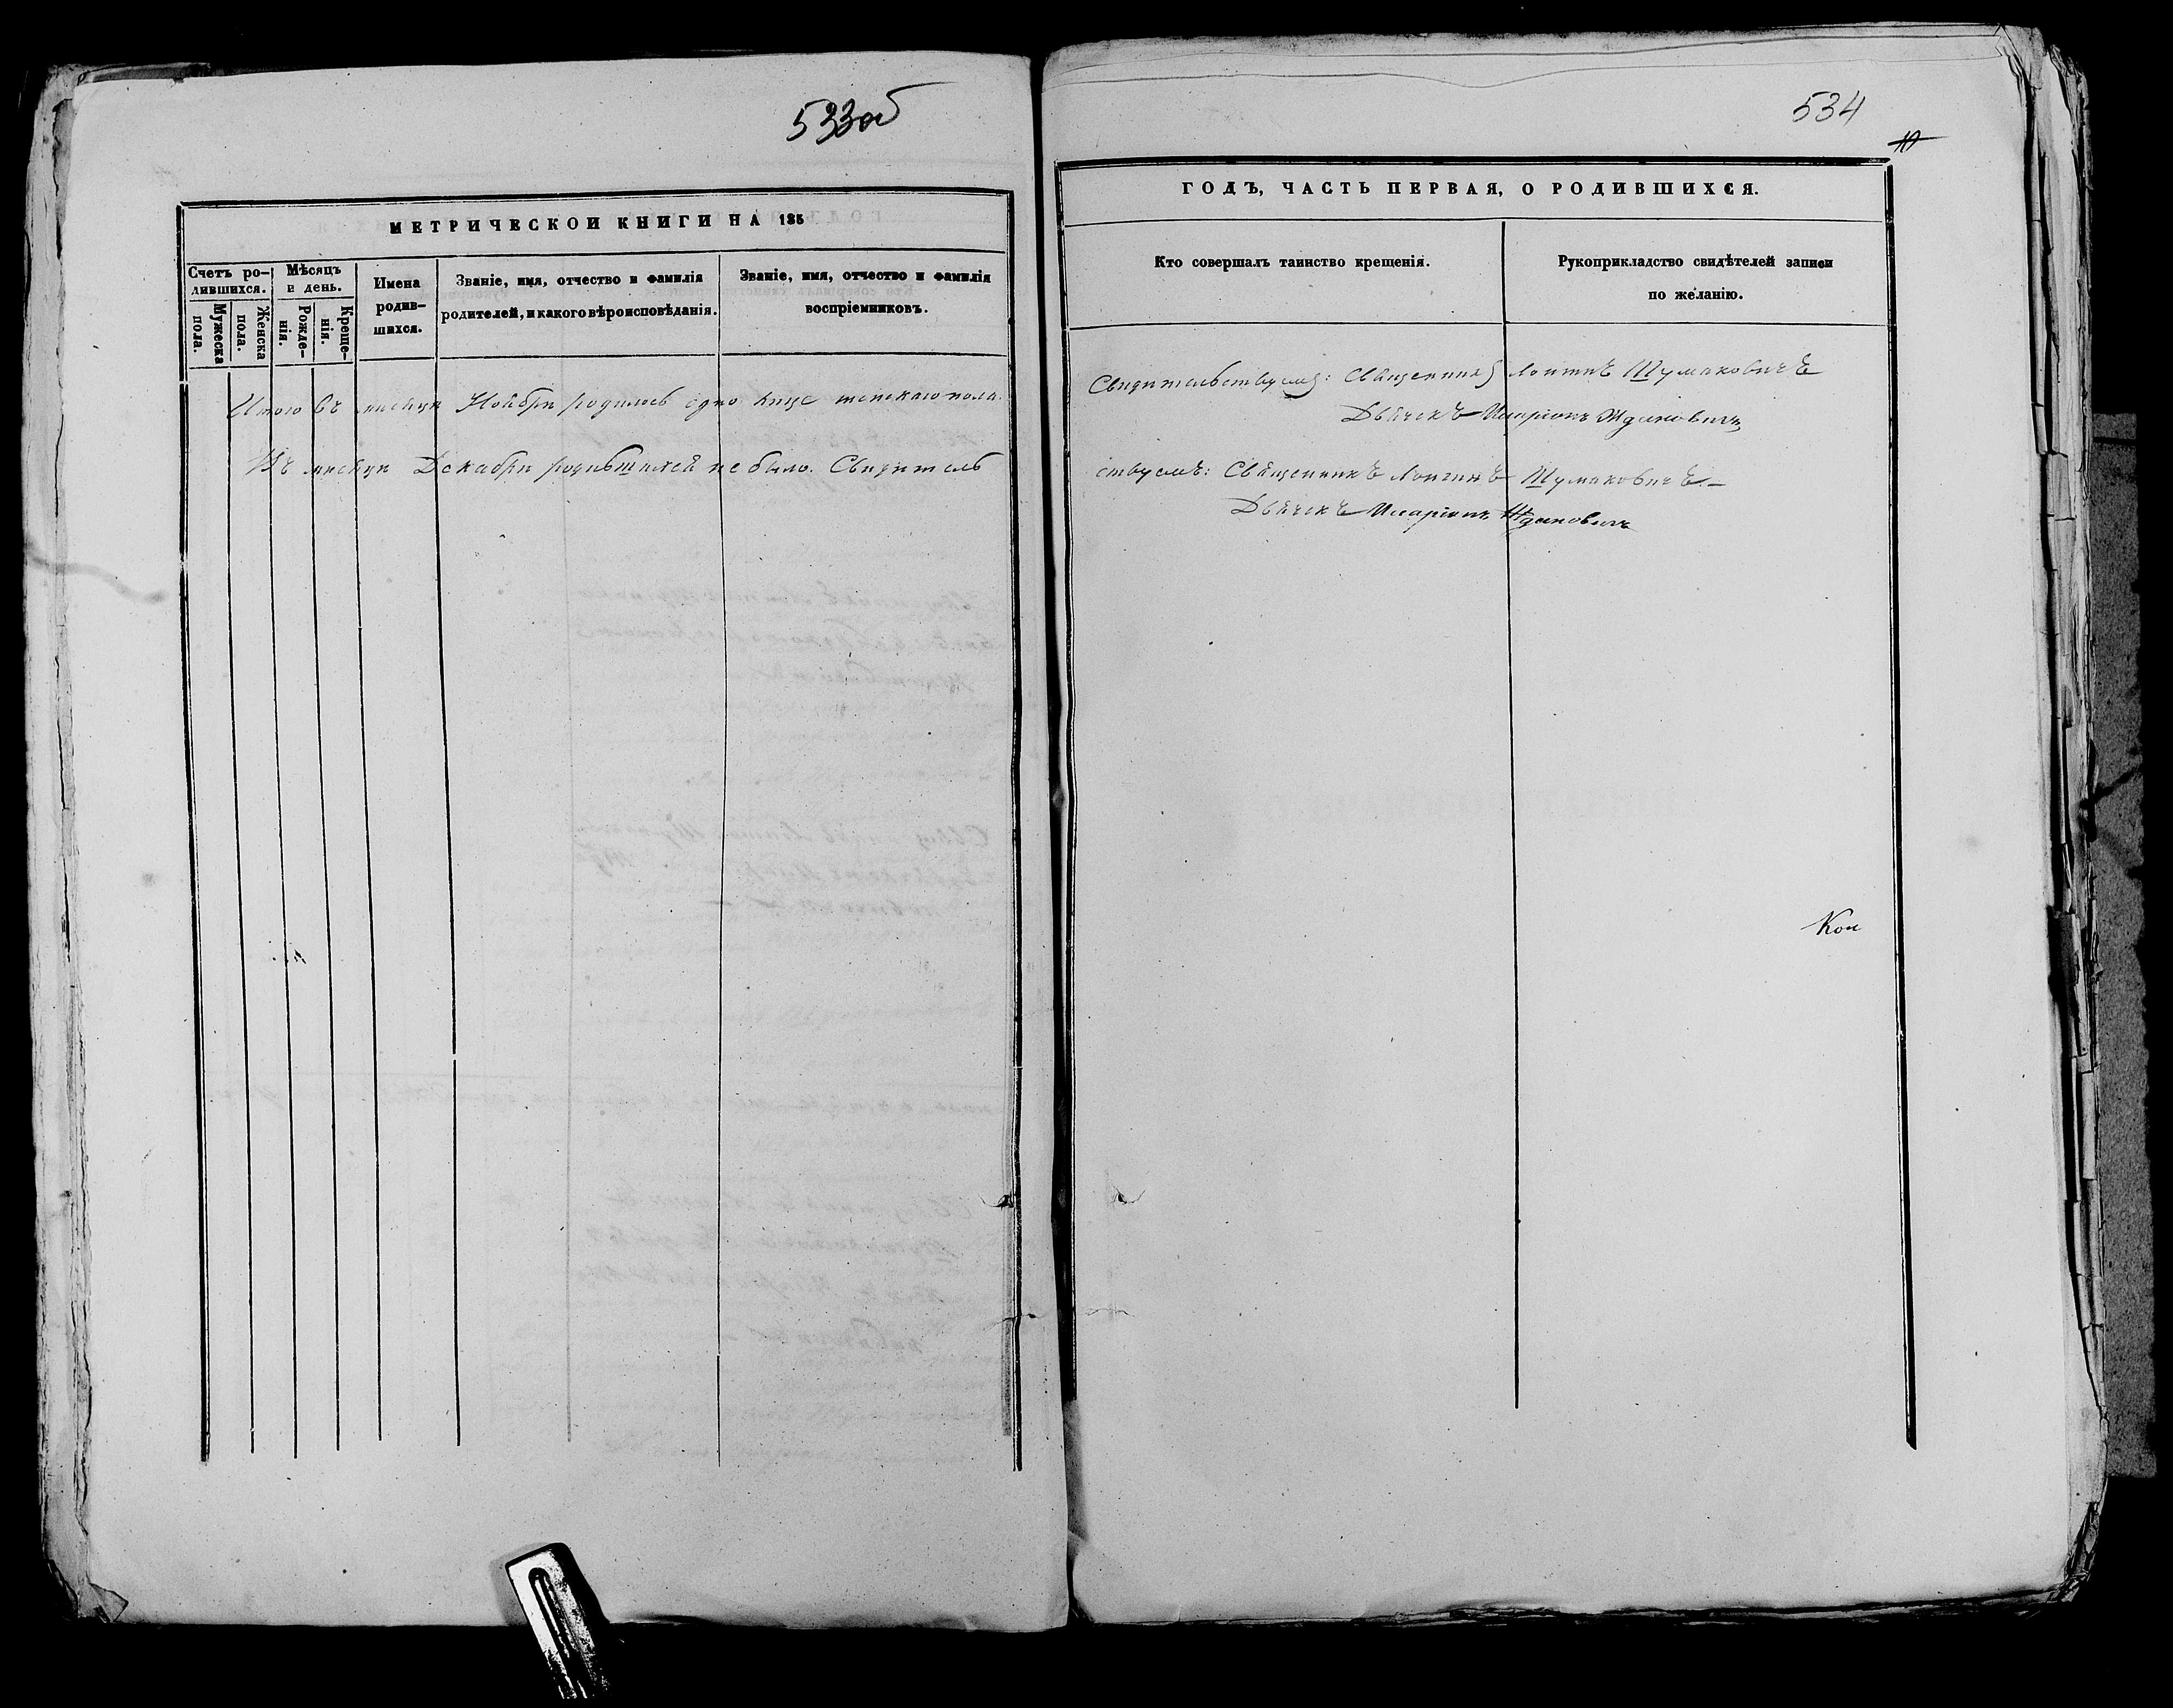 533об
МЕТРИЧЕСКОЙ КНИГИ НА 185
Счетъ ро-
дившихся.
Мужеска
пола.
Женска
пола.
Мѣсяцъ
и день.
Рожде-
нія.
Креще-
нія.
Имена
родив-
шихся.
Званіе, имя, отчество и фамилія
родителей, и какого вѣроисповѣданія.
Званіе, имя, отчество и фамилія
воспріемниковъ.
Итого въ мѣсяцѣ Ноябрѣ родилось одно лице женскаго пола.
Въ мѣсяцѣ Декабрѣ родившихся не было. Свидѣтель
534
10
ГОДЪ, ЧАСТЬ ПЕРВАЯ, О РОДИВШИХСЯ.
Кто совершалъ таинство крещенія.
Рукоприкладство свидѣтелей записи
по желанію.
Свидѣтельствуемъ: Священникъ Лонгинъ Шумаковичъ
Дьячекъ Иларіонъ Ждановичъ
ствуемъ: Священникъ Лонгинъ Шумаковичъ.
Дьячекъ Иларіонъ Ждановичъ
Кон